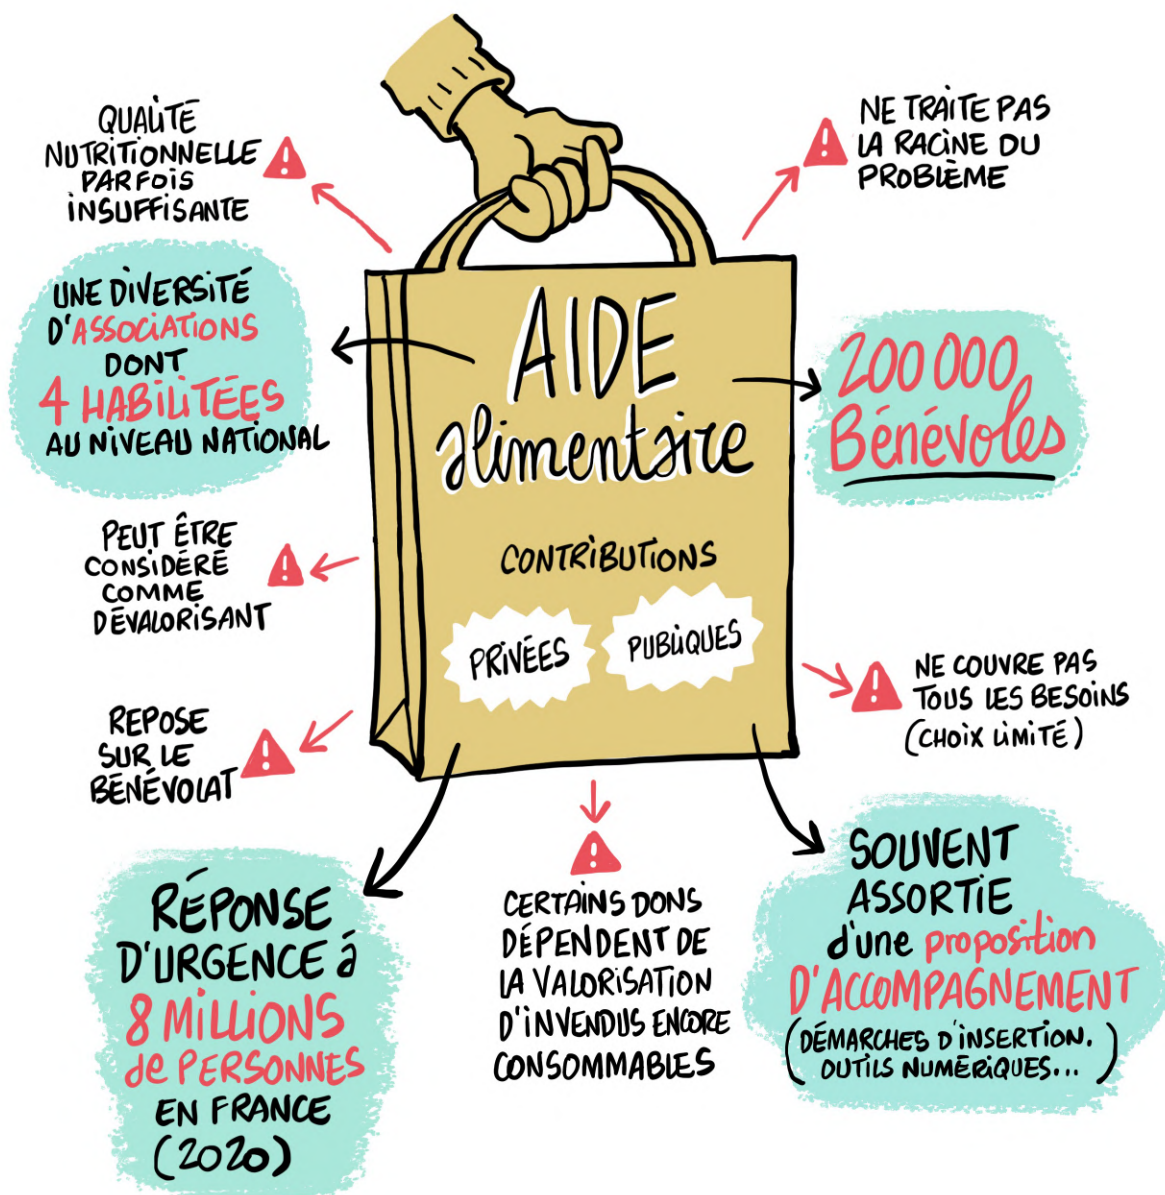 QUALITÉ
NUTRITIONNELLE
PARFOIS
INSUFFISANTE
NE TRAITE PAS
LA RACINE DU
PROBLÈME
UNE DIVERSITÉ
D'ASSOCIATIONS
DONT
4 HABILITÉES
AU NIVEAU NATIONAL
AIDE
alimentaire
200 000
Bénévoles
CONTRIBUTIONS
PRIVÉES
PUBLIQUES
PEUT ÊTRE
CONSIDÉRÉ
COMME
DÉVALORISANT
NE COUVRE PAS
TOUS LES BESOINS
(CHOIX LIMITÉ)
REPOSE
SUR LE
BÉNÉVOLAT
RÉPONSE
D'URGENCE à
8 MILLIONS
de PERSONNES
EN FRANCE
(2020)
CERTAINS DONS
DÉPENDENT DE
LA VALORISATION
D'INVENDUS ENCORE
CONSOMMABLES
SOUVENT
ASSORTIE
d'une proposition
D'ACCOMPAGNEMENT
(DÉMARCHES D'INSERTION.
OUTILS NUMÉRIQUES...)